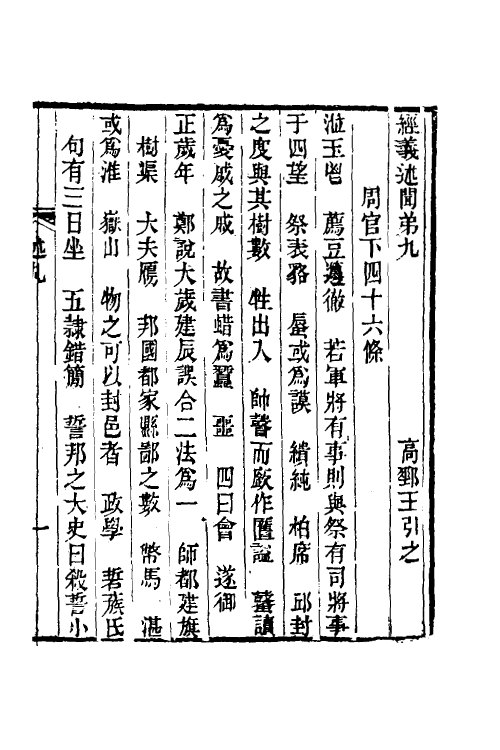 經義述聞弟九 高郵王引之
周官下四十六條
涖玉鬯 薦豆籩徹 若軍將有事則與祭有司將事
于四望 祭表貉 蜃或爲謨 繢純 柏席 邱封
之度與其樹數 牲出入 帥瞽而廞作匶謚 鼜讀
爲憂戚之戚 故書蜡爲蠶 噩 四曰會 遂御
正歲年 鄭說大歲建辰誤合二法爲一 師都建旗
樹渠 大夫鴈 邦國都家縣鄙之數 幣馬 湛
或爲淮 嶽山 物之可以封邑者 政學 硩蔟氏
句有三日坐 五隸錯簡 誓邦之大史曰殺誓小
述九 一